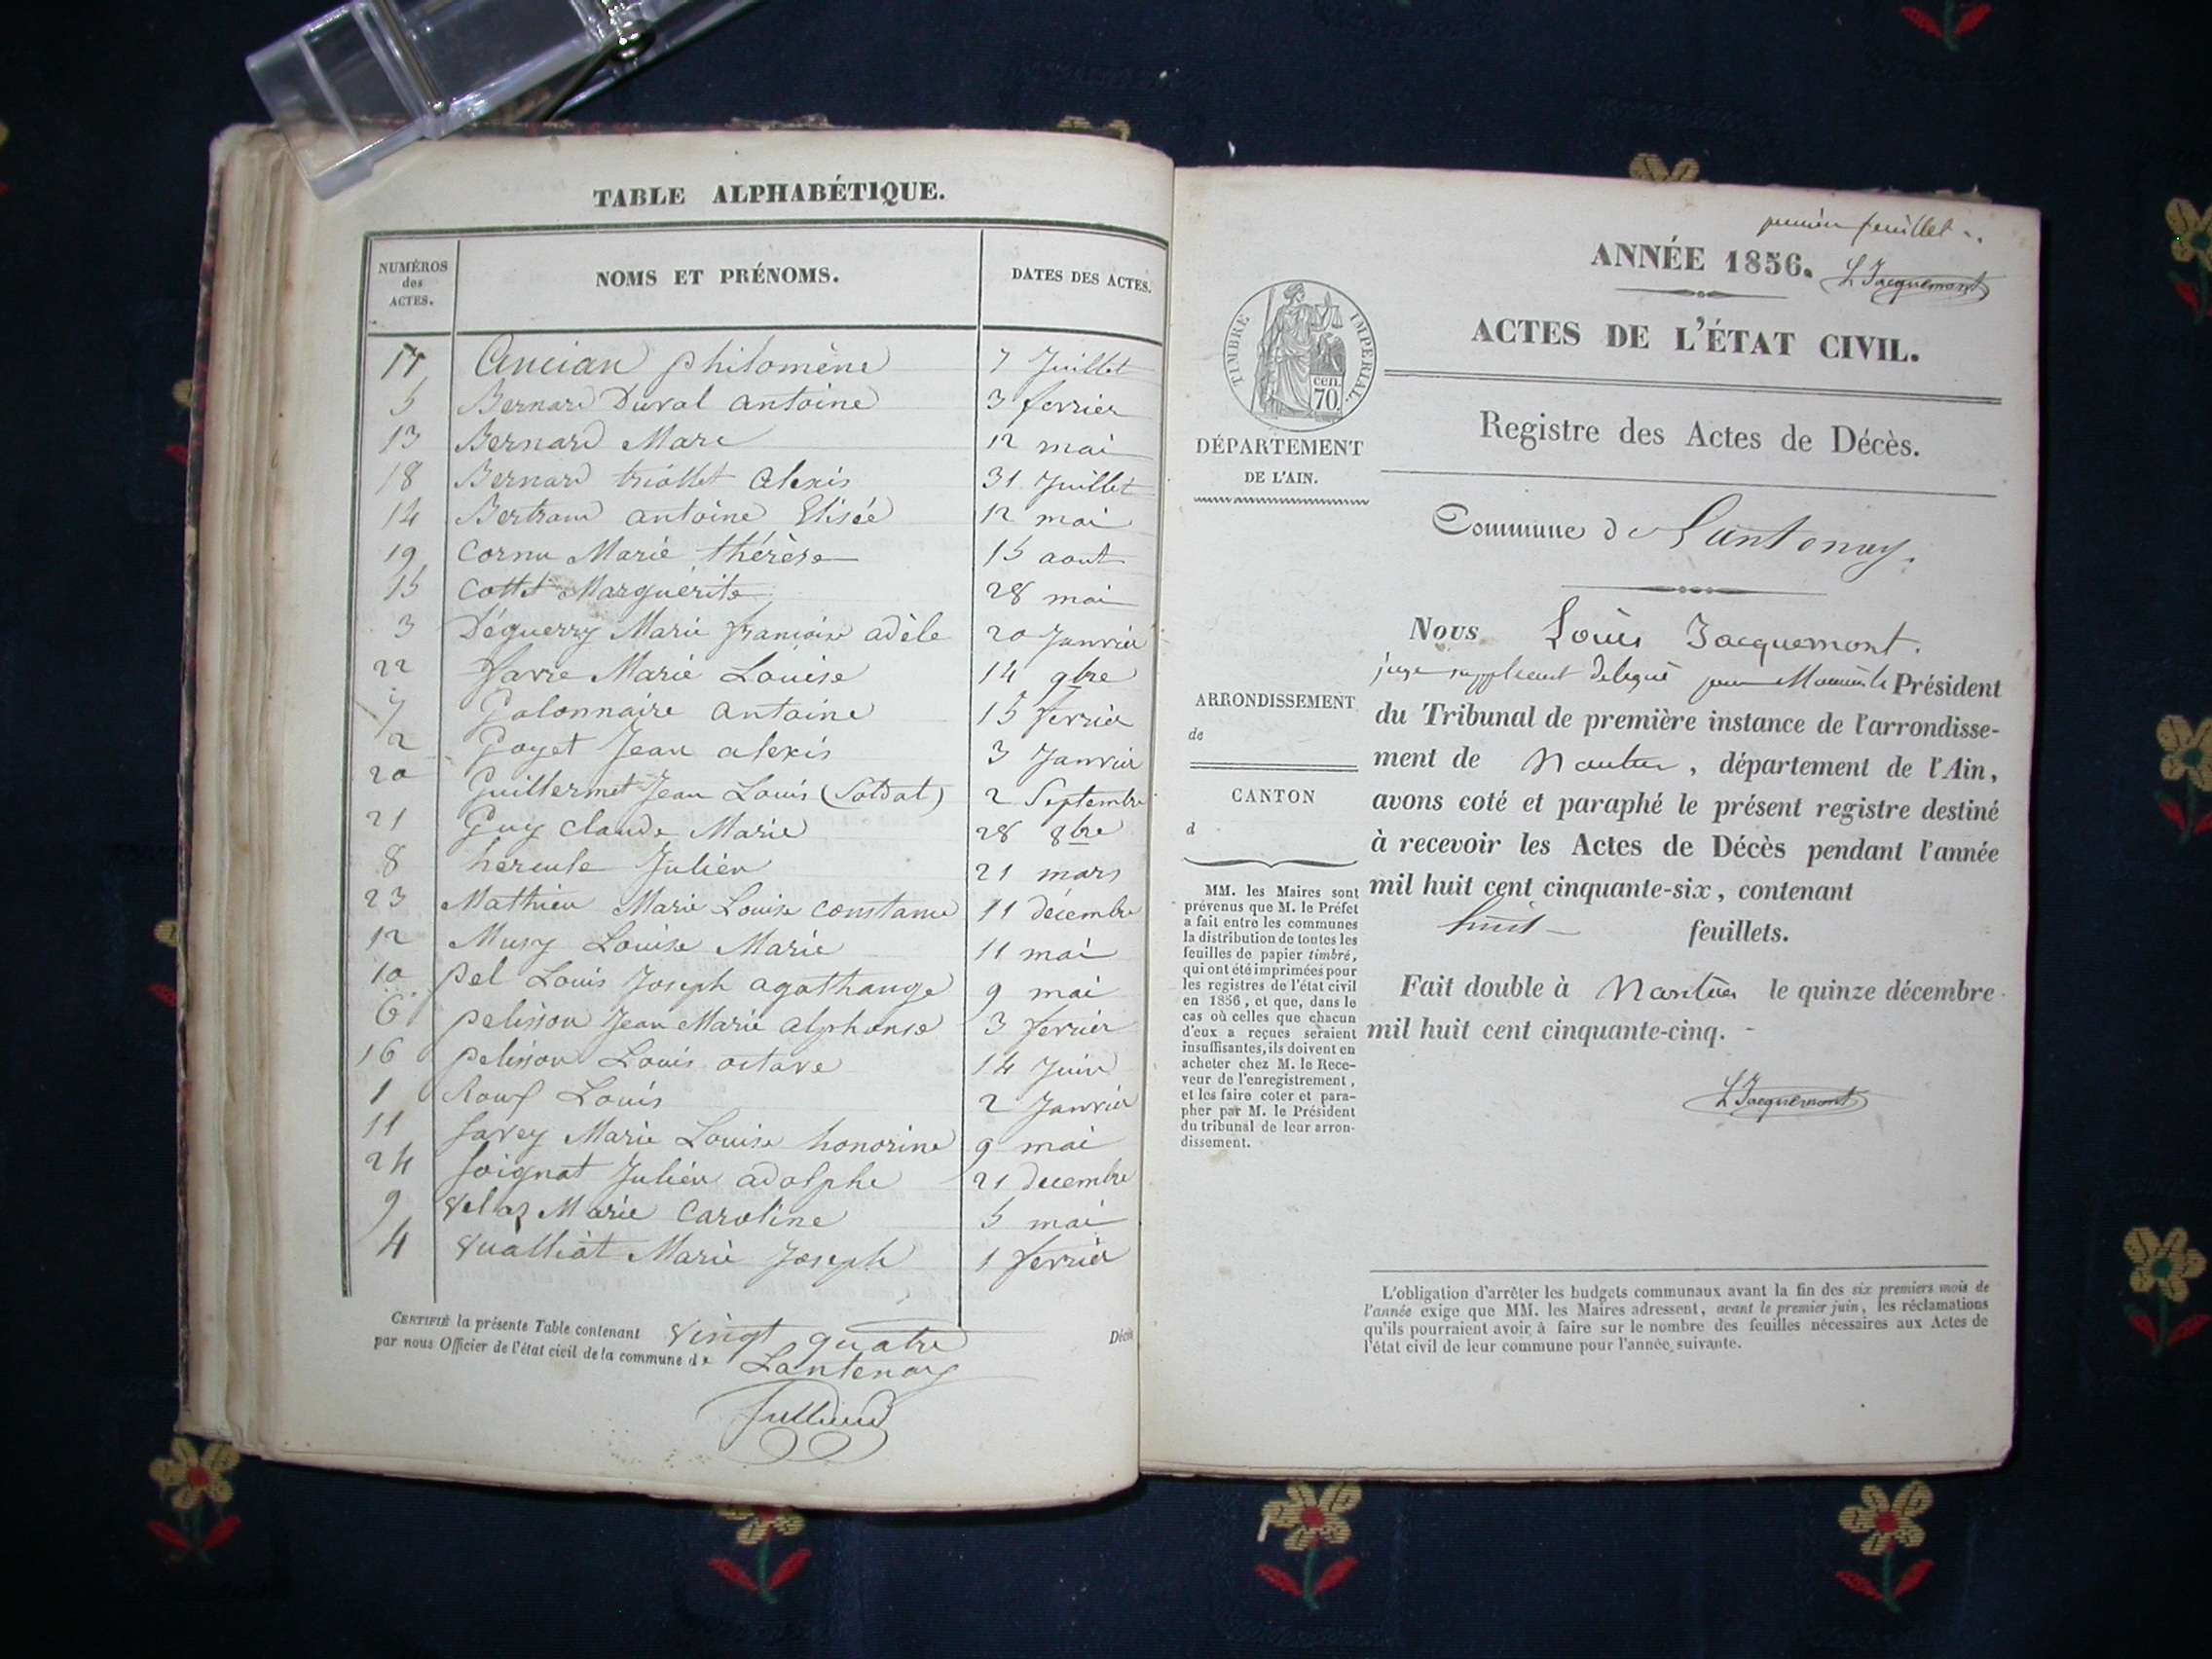 TABLE ALPHABÉTIQUE.
NUMÉROS des ACTES. NOMS ET PRÉNOMS. DATES DES ACTES.
17 Ancian philomène 7 Juillet
5 Bernard Duval antoine 3 fevrier
13 Bernard Marc 12 mai
18 Bernard triollet alexis 31 Juillet
14 Bertrand antoine Elisée 12 mai
19 Cornu Marie thérèse 15 aout
15 Cottet Marguérite 28 mai
3 Déguerry Marie françoise adèle 20 Janvier
22 favre Marie Louise 14 9bre
7 Golonnaire antoine 15 fevrier
2 Goyet Jean alexis 3 Janvier
20 Guillermet Jean Louis (Soldat) 2 Septembre
21 Guy Claude Marie 28 8bre
8 hercule Julien 21 mars
23 Mathieu Marie Louise Constance 11 décembre
12 Musy Louise Marie 11 mai
10 pel Louis Joseph agathange 9 mai
6 pelisson Jean Marie alphonse 3 fevrier
16 pelisson Louis octave 14 Juin
1 Roux Louis 2 Janvier
11 Savey Marie Louise honorine 9 mai
24 Soignat Julien adolphe 21 decembre
9 Marie Caroline 5 mai
4 Marie Joseph 1 fevrier
CERTIFIÉ la présente Table contenant vingt quatre Décès
par nous Officier de l'état civil de la commune de Lantenay
premier feuillet
ANNÉE 1856. L Jacquemont
ACTES DE L'ÉTAT CIVIL.
Registre des Actes de Décès.
Commune de Lantenay.
TIMBRE IMPERIAL
cen. 70.
DÉPARTEMENT
DE L'AIN.
ARRONDISSEMENT
de
CANTON
d
MM. les Maires sont
prévenus que M. le Préfet
a fait entre les communes
la distribution de toutes les
feuilles de papier timbré,
qui ont été imprimées pour
les registres de l'état civil
en 1856, et que, dans le
cas où celles que chacun
d'eux a reçues seraient
insuffisantes, ils doivent en
acheter chez M. le Rece-
veur de l'enregistrement,
et les faire coter et para-
pher par M. le Président
du tribunal de leur arron-
dissement.
Nous Louis Jacquemont.
juge suppléant délégué pour Monsieur le Président
du Tribunal de première instance de l'arrondisse-
ment de Nantua, département de l'Ain,
avons coté et paraphé le présent registre destiné
à recevoir les Actes de Décès pendant l'année
mil huit cent cinquante-six, contenant
huit feuillets.
Fait double à Nantua le quinze décembre
mil huit cent cinquante-cinq.
L Jacquemont
L'obligation d'arrêter les budgets communaux avant la fin des six premiers mois de
l'année exige que MM. les Maires adressent, avant le premier juin, les réclamations
qu'ils pourraient avoir à faire sur le nombre des feuilles nécessaires aux Actes de
l'état civil de leur commune pour l'année suivante.